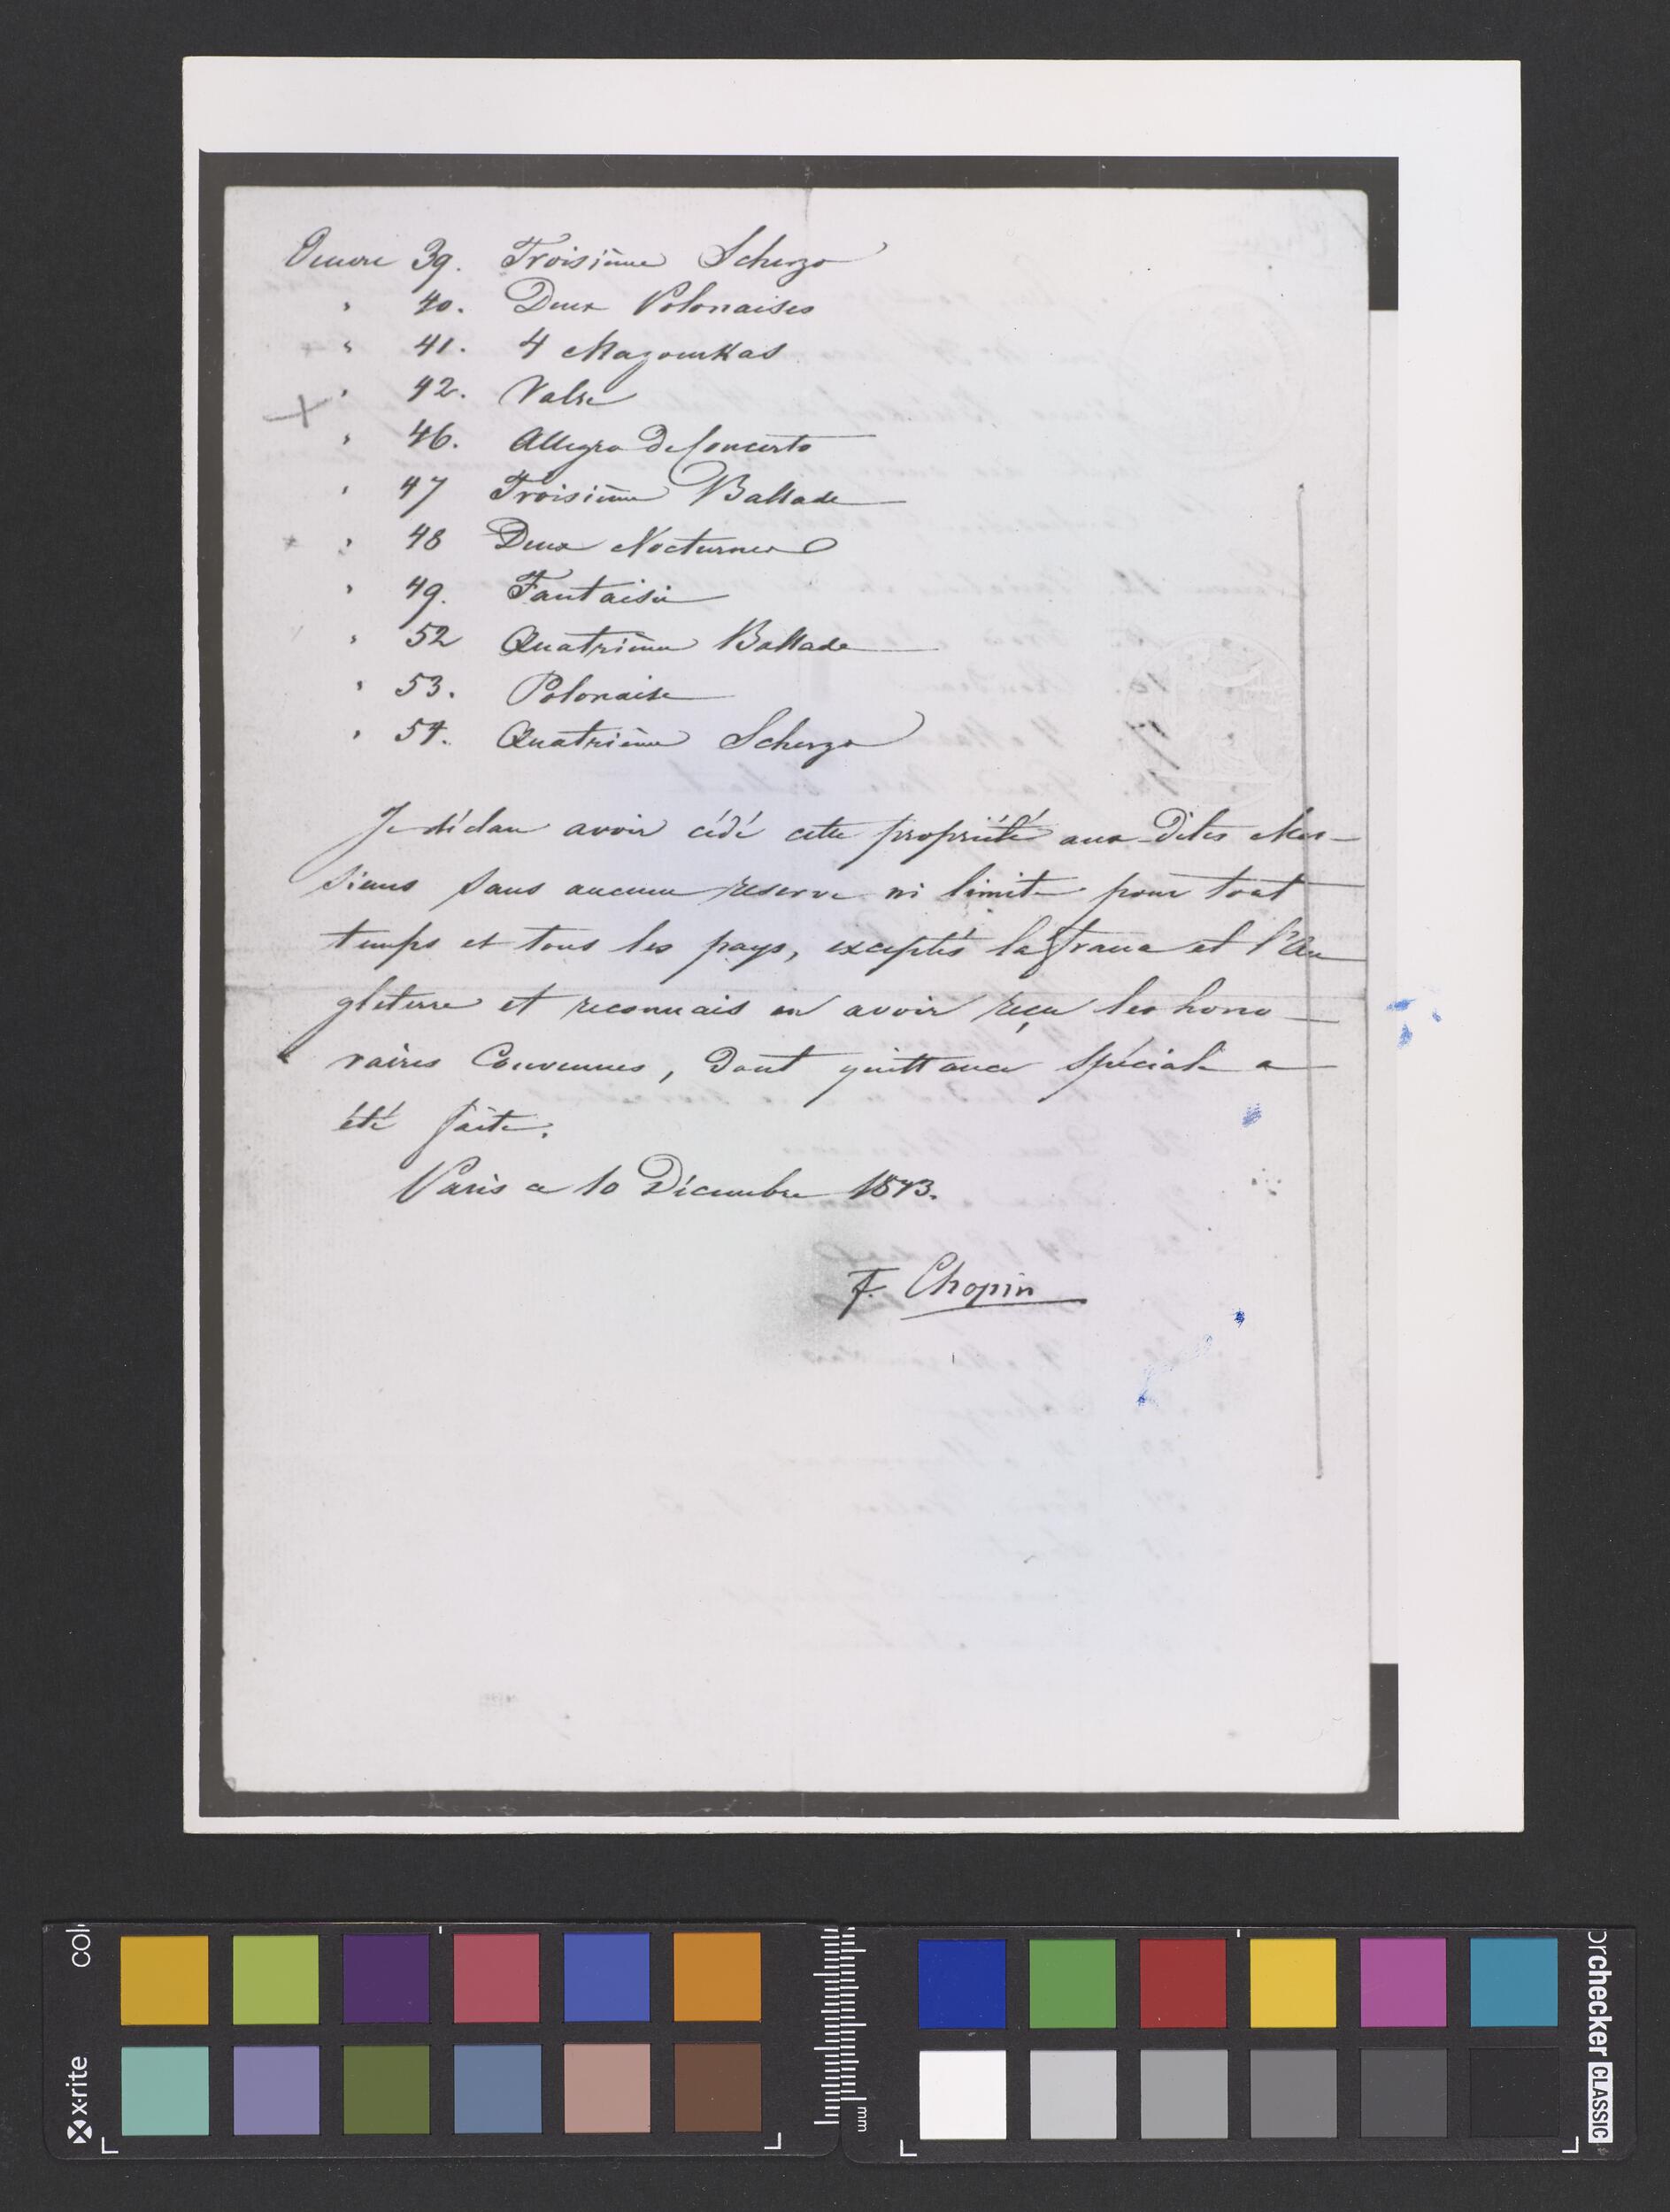 Oeuvre 39. Troisième Scherzo
" 40. Deux Polonaises
" 41. 4 Mazourkas
" 42. Valse
" 46. Allegro de Concerto
" 47 Troisième Ballade
" 48 Deux Nocturnes
" 49. Fantaisie
" 52 Quatrième Ballade
" 53. Polonaise
" 54. Quatrième Scherzo
Je déclare avoir cédé cette propriété aux dites Mes-
sieurs sans aucune reserve ni limite pour tout
temps et tous les pays, exceptés la France et l'An
gleterre et reconnais en avoir reçu les hono-
raires convenues, dont quittance spéciale a
été faite.
Paris ce 10 Décembre 1843.
F. Chopin
x-rite
colorchecker CLASSIC
mm